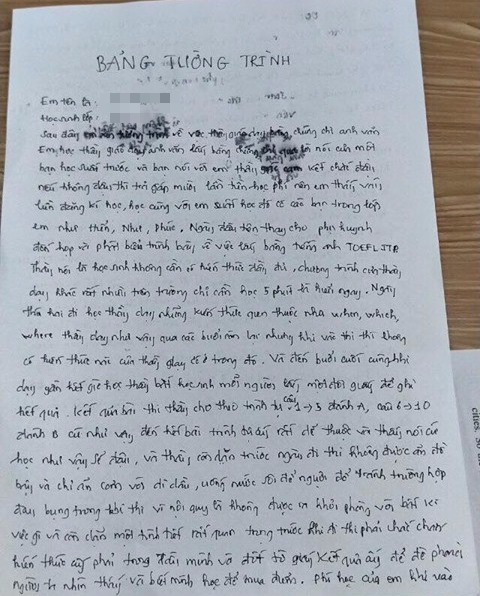 BẢNG TƯỜNG TRÌNH
Em tên là:
Học sinh lớp:
Sau đây em xin tường trình về việc thầy giáo dạy bằng, chứng chỉ anh văn
Em học thầy giáo dạy anh văn lấy bằng chứng chỉ qua lời nói của một
bạn học suất trước và bạn nói với em thầy cam kết chắc đậu
nếu không đậu thì trả gấp mười lần tiền học phí nên em thấy vậy
liền đăng kí học, học cùng với em suất học đó có các bạn trong lớp
em như Thiên, Như, Phúc, Ngày đầu tiên thầy cho phụ huynh
đến họp và phát biểu trình bày về việc lấy bằng tiếng anh TOEFL ITP
Thầy nói là học sinh không cần có kiến thức đầy đủ, chương trình của thầy
dạy khác rất nhiều trên trường chỉ cần học 5 phút là hiểu ngay. Ngày
thứ hai đi học thầy dạy những kiến thức quen thuộc như when, which,
where thầy dạy như vậy qua các buổi còn lại nhưng khi vào thi thì không
có kiến thức nào của thầy dạy có ở trong đó. Và đến buổi cuối cùng khi
dạy gần hết giờ học thầy bắt học sinh mỗi người lấy một đôi giấy để ghi
kết quả. Kết quả bài thi thầy cho theo trình tự câu 1 → 5 đánh A, câu 6 → 10
đánh B cứ như vậy đến hết bài trình tự ấy rất dễ thuộc và thầy nói cứ
học như vậy sẽ đậu, và thầy còn dặn trước ngày đi thi không được ăn đồ
bậy và chỉ ăn cơm với dĩ dầu, uống nước sôi để nguội để tránh trường hợp
đau bụng trong khi thi vì nội quy là không được ra khỏi phòng với bất kì
việc gì và còn dặn một tình tiết rất quan trọng trước khi đi thi phải chắc chắn
kiến thức ấy phải trong đầu mình và đốt tờ giấy kết quả ấy để đề phòng
người ta nhìn thấy và bắt mình học để mua điểm. Phí học của em khi vào